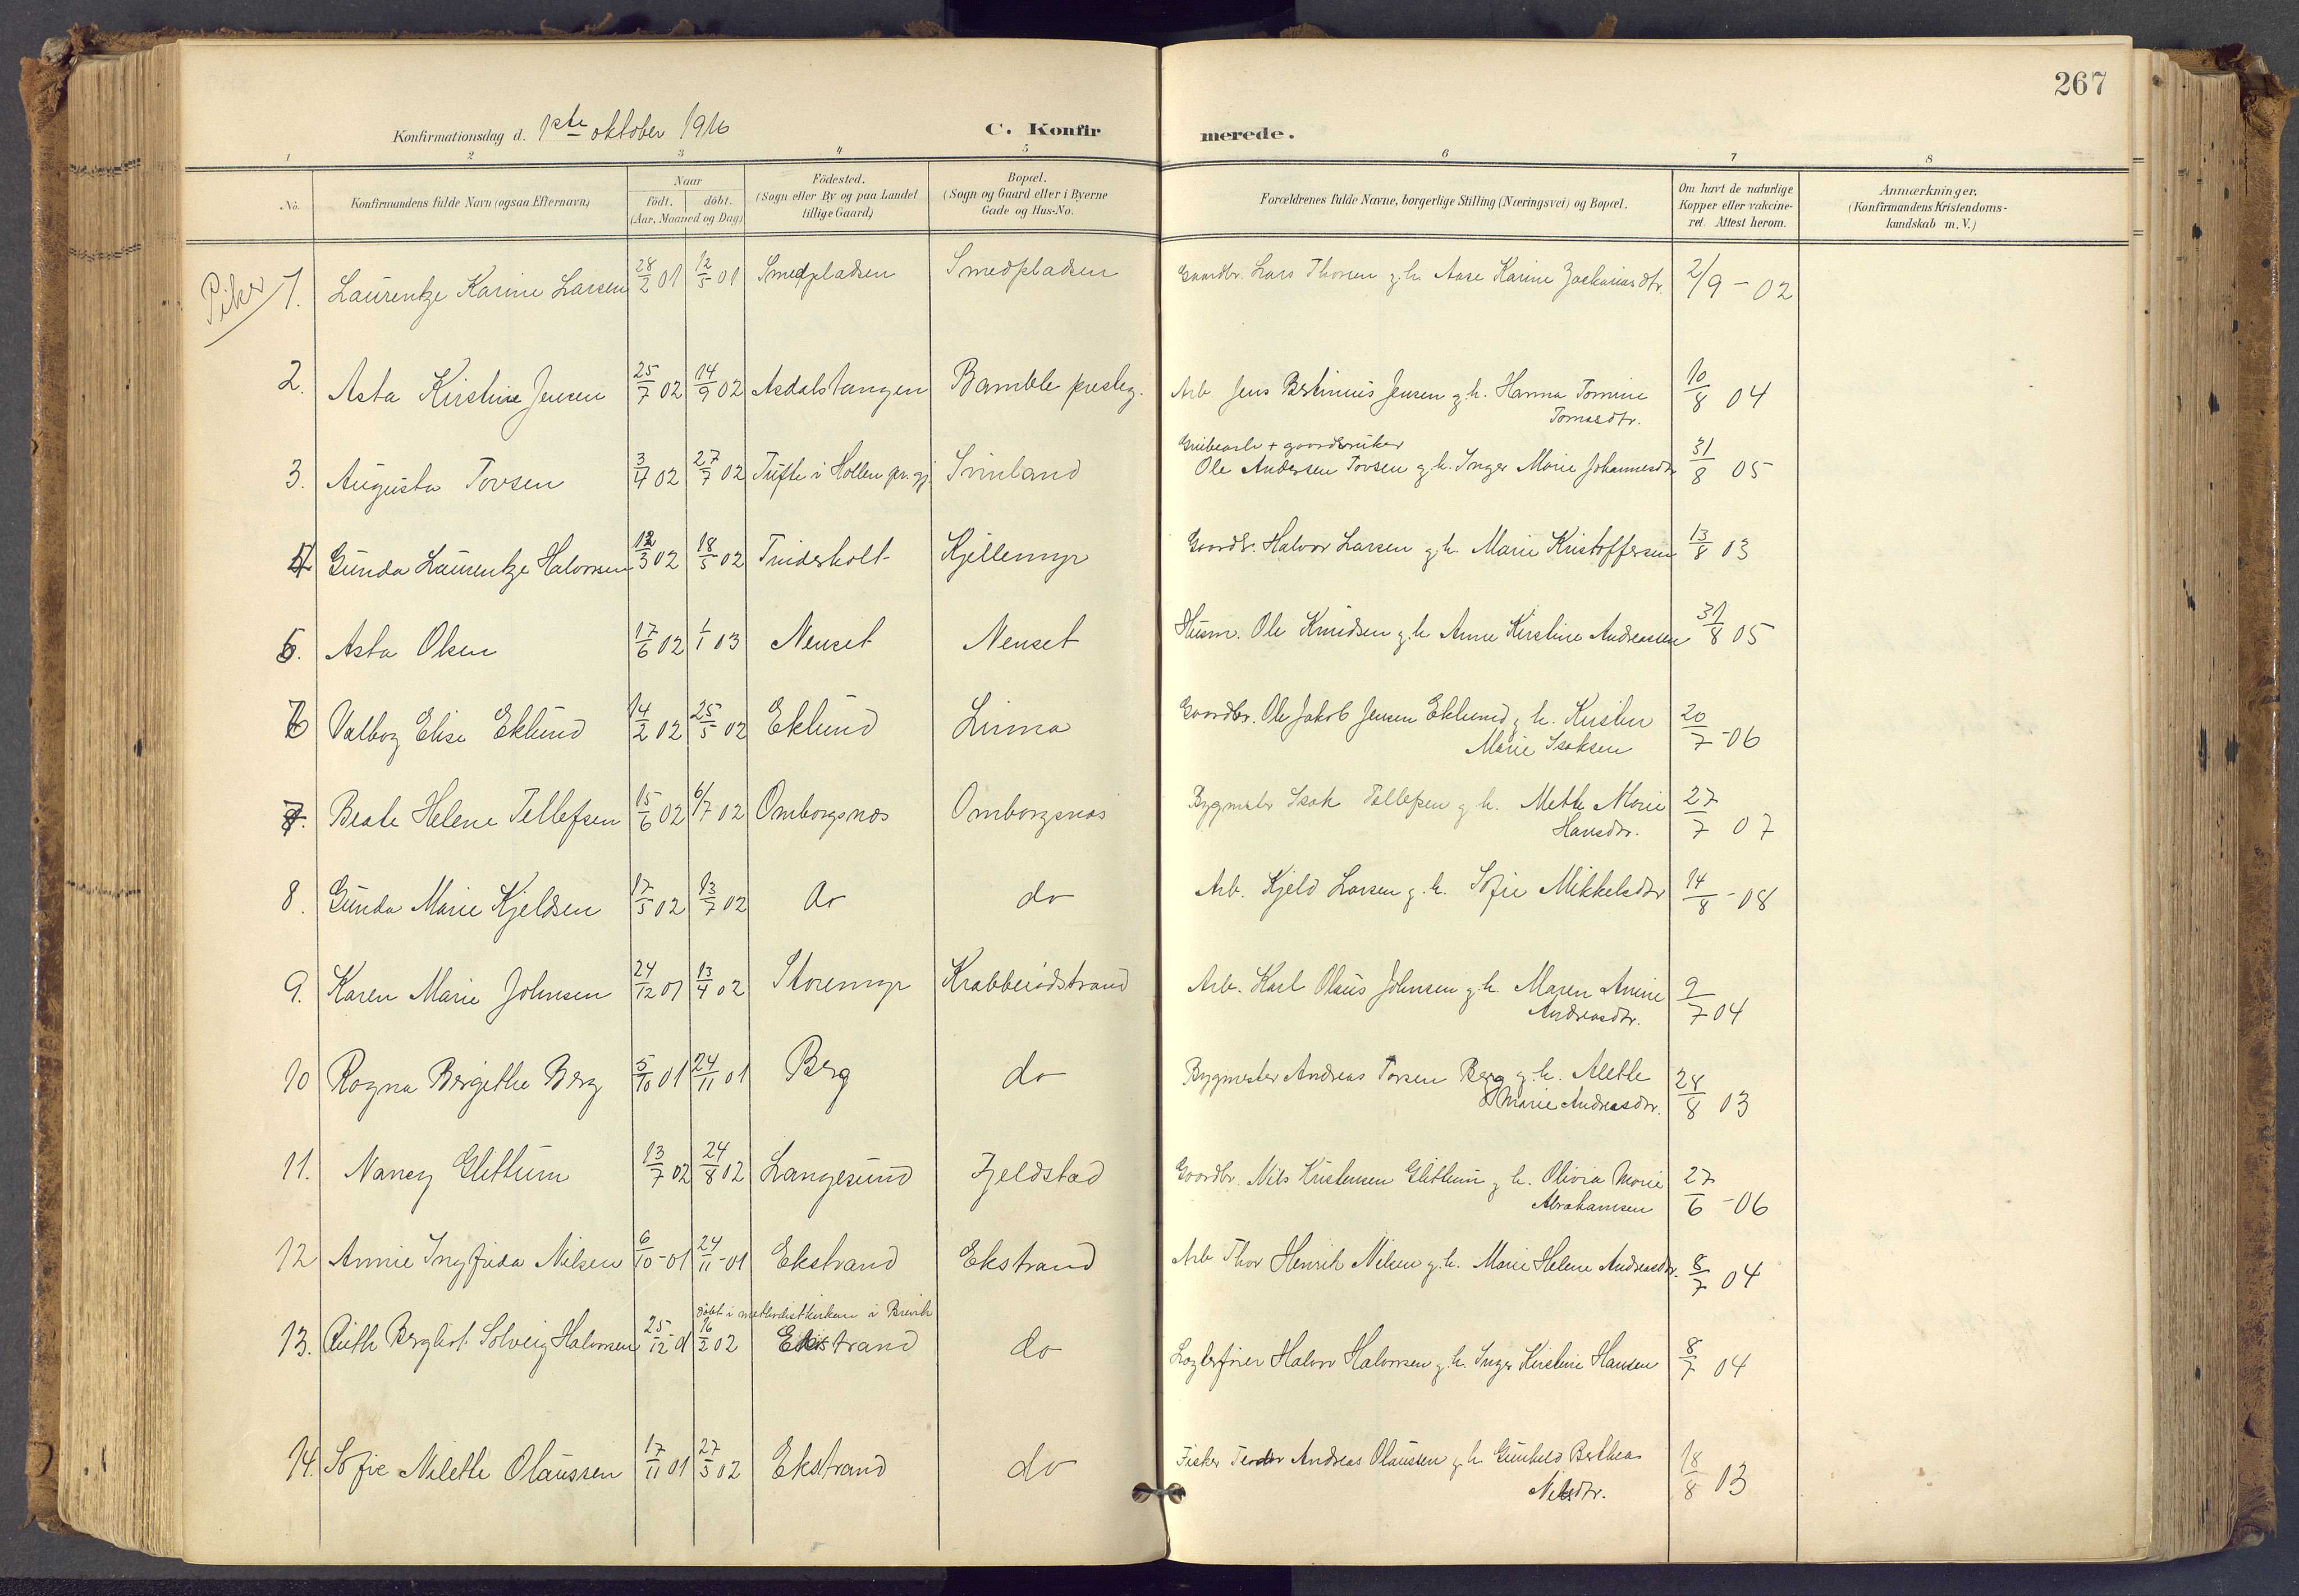 267
Konfirmationsdag d. 1ste oktober 1916
C. Konfirmerede.
1 2 3 4 5 6 7 8
No.
Konfirmandens fulde Navn (ogsaa Efternavn)
Naar
födt. döbt.
(Aar, Maaned og Dag)
Födested.
(Sogn eller By og paa Landet
tillige Gaard)
Bopæl.
(Sogn og Gaard eller i Byerne
Gade og Hus-No.
Forældrenes fulde Navne, borgerlige Stilling (Næringsvei) og Bopæl.
Om havt de naturlige
Kopper eller vakcine-
ret. Attest herom.
Anmærkninger.
(Konfirmandens Kristendoms-
kundskab m. V.)
Piker
1. Laurentze Karine Larsen 28/2 01 12/5 01 Smedpladsen Smedpladsen Gaardbr. Lars Thorsen g. h. Aase Karine Zachariasdtr. 2/9 - 02
2. Asta Kirstine Jensen 25/7 02 14/9 02 Asdalstangen Bamble presteg. Arb. Jens Bertinius Jensen g. h. Hanna Tomine
Tomasdtr. 10/8 04
3. Augusta Tovsen 3/4 02 27/7 02 Tufte i Hollen pr. gj. Svinland Grubearb + gaardbruker
Ole Andersen Tovsen g. h. Inger Marie Johannesdtr 31/8 05
4 Gunda Laurentze Halvorsen 12/3 02 18/5 02 Trudsholt Kjellemyr Gaardbr. Halvor Larsen g. h. Marie Kristoffersen 13/8 03
5. Asta Olsen 17/6 02 1/1 03 Nenset Nenset Husm. Ole Knudsen g. h Anne Kirstine Andreassen 31/8 05
6 Valborg Elise Eklund 14/2 02 25/5 02 Eklund Linna Gaardbr. Ole Jakob Jensen Eklund g. h. Kirsten
Marie Isaksen 20/7 - 06
7. Beate Helene Tellefsen 15/6 02 6/7 02 Omborgsnes Omborgsnes Bygmstr Isak Tellefsen g. h. Mette Marie
Hansdtr. 27/7 07
8. Gunda Marie Kjeldsen 17/5 02 13/7 02 do do Arb. Kjeld Larsen g. h. Sofie Mikkelsdtr 14/8 - 08
9. Karen Marie Johnsen 24/12 01 13/4 02 Storemyr Krabberødstrand Arb. Karl Olaus Johnsen g. h. Maren Anine
Andreasdtr. 9/7 04
10 Ragna Bergithe Berg 5/10 01 24/11 01 Berg do Bygmester Andreas Torsen Berg g. h. Alette
Marie Andreasdtr. 28/8 03
11. Nancy Glittum 13/7 02 24/8 02 Langesund Fjeldstad Gaardbr. Nils Kristensen Glittum g. h. Olivia Marie
Abrahamsen 27/6 - 06
12 Annie Ingfrida Nilsen 6/10 - 01 24/11 - 01 Ekstrand Ekstrand Arb Thor Henrik Nilsen g. h. Marie Helene Andreasdtr. 8/7 04
døbt i methodistkirken i Brevik
13. Ruth Bergliot Solveig Halvorsen 25/12 - 01 16/2 02 Ekstrand do Lægterfører Halvor Halvorsen g. h. Inger Kirstine Hansen 8/7 04
14. Sofie Nilette Olaussen 17/11 01 27/3 02 Ekstrand do Fisker Teodor Andreas Olaussen g. h Gunhild Berthea
Nilsdtr. 18/8 03